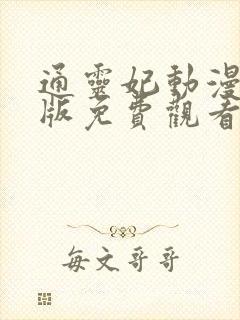 通靈妃動漫
版免費觀看
每文哥哥